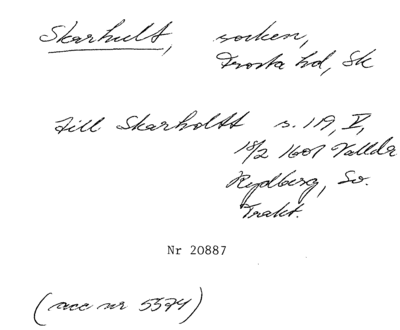 Skarhult, socken,
Frosta hd, Sk
Till Skarholtt s. 119, V,
18/2 1607 Vallda
Rydberg, Sv.
Trakt.
Nr 20887
(acc nr 5574)